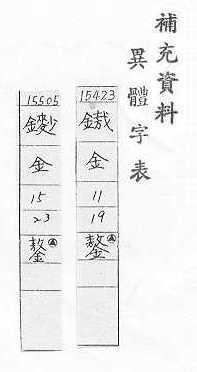 補充資料
異體字表
15423
金
11
19
鏊Ⓐ
15505
金
15
23
鏊Ⓐ